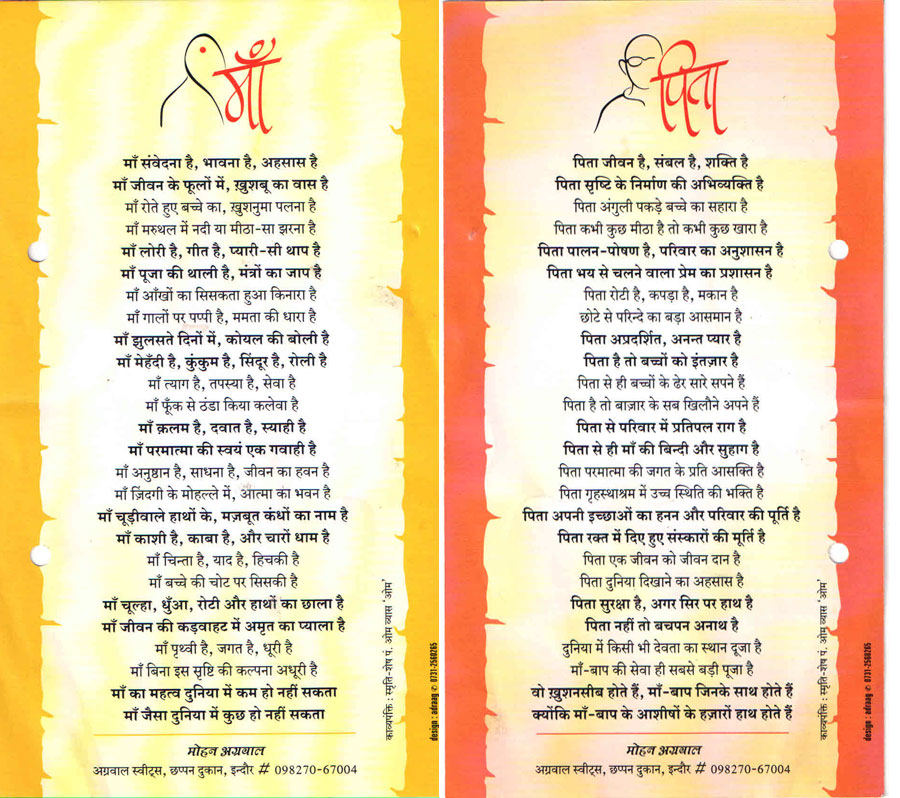 माँ
माँ संवेदना है, भावना है, अहसास है
माँ जीवन के फूलों में, ख़ुशबू का वास है
माँ रोते हुए बच्चे का, ख़ुशनुमा पलना है
माँ मरुथल में नदी या मीठा-सा झरना है
माँ लोरी है, गीत है, प्यारी-सी थाप है
माँ पूजा की थाली है, मंत्रों का जाप है
माँ आँखों का सिसकता हुआ किनारा है
माँ गालों पर पप्पी है, ममता की धारा है
माँ झुलसते दिनों में, कोयल की बोली है
माँ मेहँदी है, कुंकुम है, सिंदूर है, रोली है
माँ त्याग है, तपस्या है, सेवा है
माँ फूँक से ठंडा किया कलेवा है
माँ क़लम है, दवात है, स्याही है
माँ परमात्मा की स्वयं एक गवाही है
माँ अनुष्ठान है, साधना है, जीवन का हवन है
माँ ज़िंदगी के मोहल्ले में, आत्मा का भवन है
माँ चूड़ीवाले हाथों के, मज़बूत कंधों का नाम है
माँ काशी है, काबा है, और चारों धाम है
माँ चिन्ता है, याद है, हिचकी है
माँ बच्चे की चोट पर सिसकी है
माँ चूल्हा, धुँआ, रोटी और हाथों का छाला है
माँ जीवन की कड़वाहट में अमृत का प्याला है
माँ पृथ्वी है, जगत है, धूरी है
माँ बिना इस सृष्टि की कल्पना अधूरी है
माँ का महत्व दुनिया में कम हो नहीं सकता
माँ जैसा दुनिया में कुछ हो नहीं सकता
काव्यपंक्ति : स्मृति-शेष पं. ओम व्यास 'ओम'
design : adraag ✆ 0731-2560265
मोहन अग्रवाल
अग्रवाल स्वीट्स, छप्पन दुकान, इन्दौर # 098270-67004
पिता
पिता जीवन है, संबल है, शक्ति है
पिता सृष्टि के निर्माण की अभिव्यक्ति है
पिता अंगुली पकड़े बच्चे का सहारा है
पिता कभी कुछ मीठा है तो कभी कुछ खारा है
पिता पालन-पोषण है, परिवार का अनुशासन है
पिता भय से चलने वाला प्रेम का प्रशासन है
पिता रोटी है, कपड़ा है, मकान है
छोटे से परिन्दे का बड़ा आसमान है
पिता अप्रदर्शित, अनन्त प्यार है
पिता है तो बच्चों को इंतज़ार है
पिता से ही बच्चों के ढेर सारे सपने हैं
पिता है तो बाज़ार के सब खिलौने अपने हैं
पिता से परिवार में प्रतिपल राग है
पिता से ही माँ की बिन्दी और सुहाग है
पिता परमात्मा की जगत के प्रति आसक्ति है
पिता गृहस्थाश्रम में उच्च स्थिति की भक्ति है
पिता अपनी इच्छाओं का हनन और परिवार की पूर्ति है
पिता रक्त में दिए हुए संस्कारों की मूर्ति है
पिता एक जीवन को जीवन दान है
पिता दुनिया दिखाने का अहसास है
पिता सुरक्षा है, अगर सिर पर हाथ है
पिता नहीं तो बचपन अनाथ है
दुनिया में किसी भी देवता का स्थान दूजा है
माँ-बाप की सेवा ही सबसे बड़ी पूजा है
वो ख़ुशनसीब होते हैं, माँ-बाप जिनके साथ होते हैं
क्योंकि माँ-बाप के आशीषों के हज़ारों हाथ होते हैं
काव्यपंक्ति : स्मृति-शेष पं. ओम व्यास 'ओम'
design : adraag ✆ 0731-2560265
मोहन अग्रवाल
अग्रवाल स्वीट्स, छप्पन दुकान, इन्दौर # 098270-67004